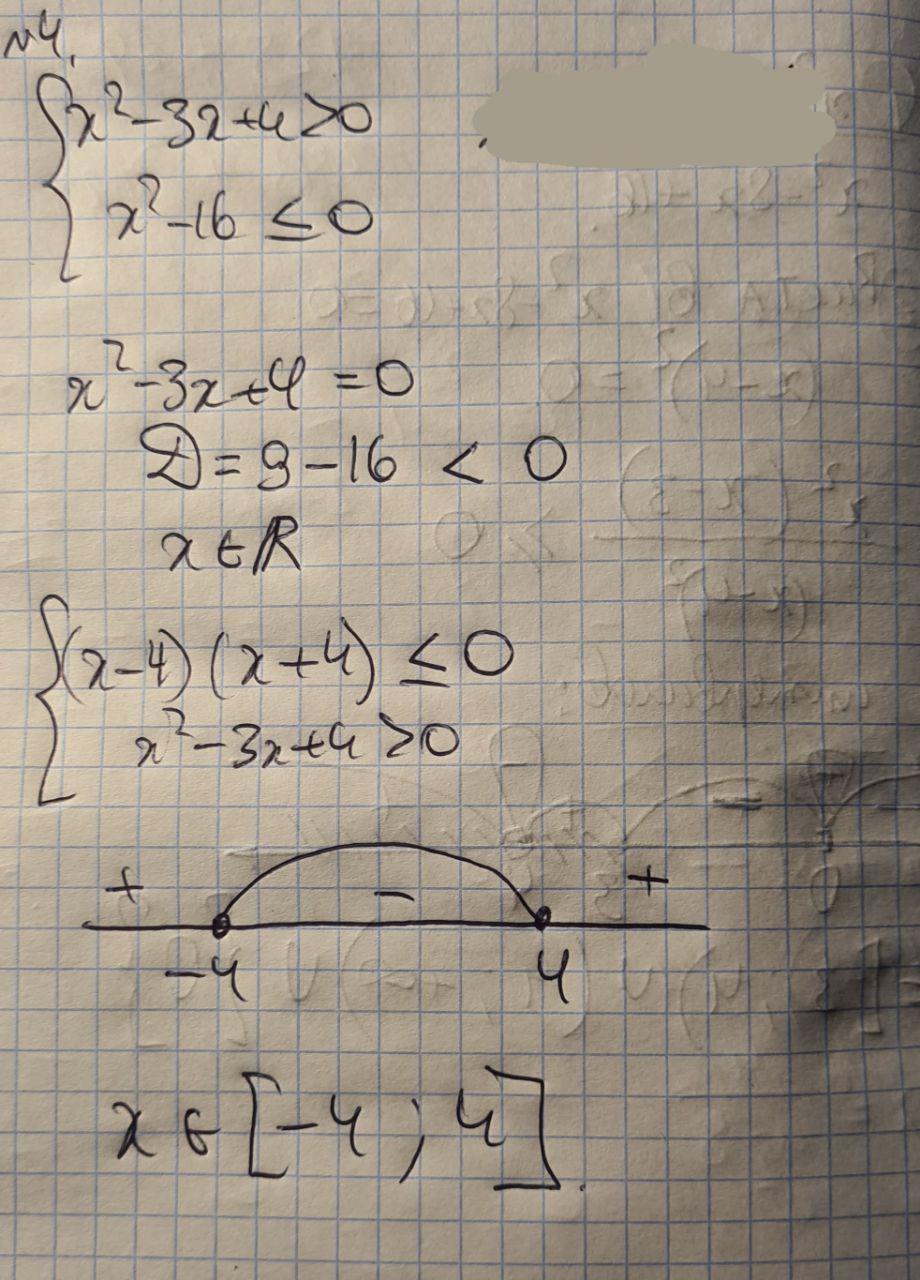 №4.
{ x² - 3x + 4 > 0
x² - 16 ≤ 0
x² - 3x + 4 = 0
D = 9 - 16 < 0
x ∈ ℝ
{ (x - 4)(x + 4) ≤ 0
x² - 3x + 4 > 0
+ - +
-4 4
x ∈ [-4 ; 4].